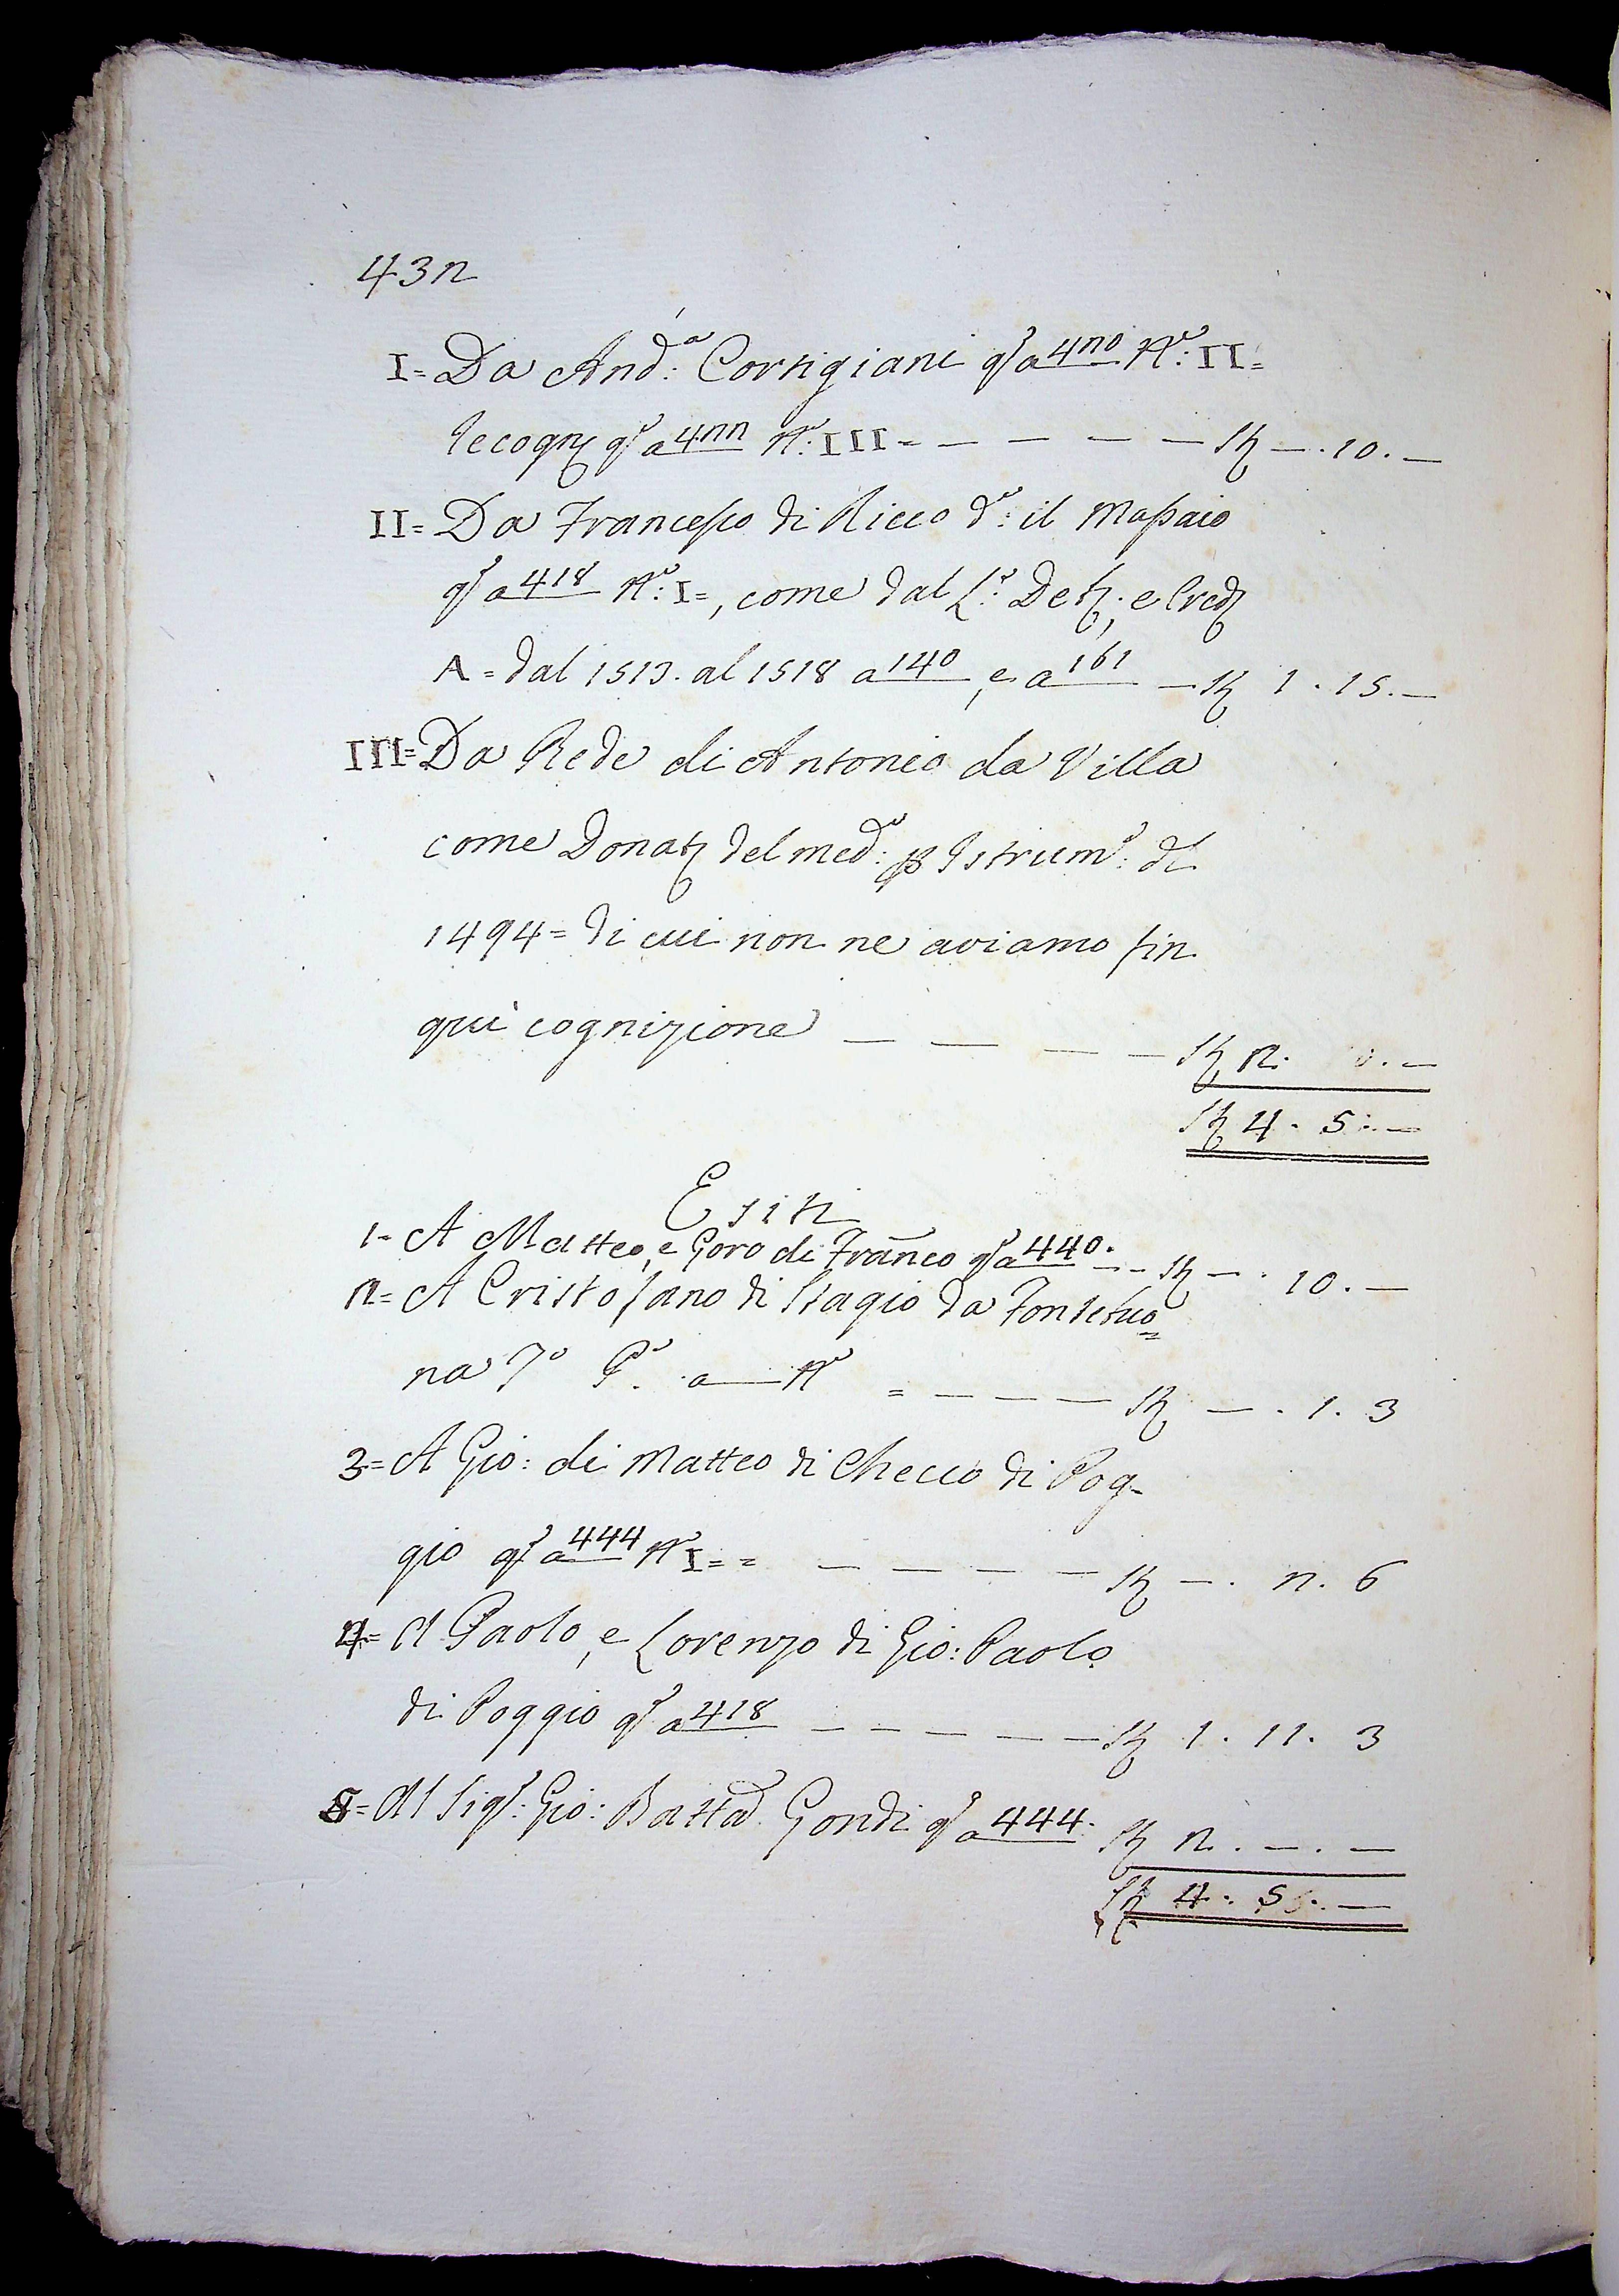 432
I= Da And:ª Cortigiani qs a 420 Nº: II=
Secogn qs a 422 Nº: III= — — — — St — . 10. —
II= Da Francesco di Ricco dº: il Massaio
qs a 418 Nº: I=, come dal Lº: Deb; e Cred
A= dal 1513. al 1518 a 140, e a 161 — St 1 . 15. —
III= Da Rede di Antonio da Villa
come Donat del medº: p Istrumº: del
1494= di cui non ne aviamo fin
quì cognizione — — — — St 2. 0. —
St 4. 5. —
Esiti
1= A Matteo, e Goro di Franco qs a 440. — — St — . 10. —
2= A Cristofano di Stagio da Fontebuo=
na 7º Pº. a — Nº = — — — — St — . 1. 3
3= A Gio: di Matteo di Checco di Pog-
gio qs a 444 Nº I= = — — — — St — . 2. 6
4= A Paolo, e Lorenzo di Gio: Paolo
di Poggio qs a 418 — — — — — St 1. 11. 3
5= Al Sigr: Gio: Batta Gondi qs a 444. St 2. — . —
St 4. 5. —